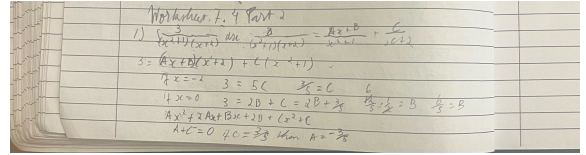 Worksheet 7.4 Part 2
1) ∫ 3/(x²+1)(x+2) dx 3/(x²+1)(x+2) = Ax+B/x²+1 + C/x+2
3 = (Ax+B)(x+2) + C(x²+1)
if x=-2 3 = 5C 3/5 = C
if x=0 3 = 2B + C = 2B + 3/5 = B 6/5 = B
Ax² + 2Ax + Bx + 2B + Cx² + C
A+C=0 if C=3/5 then A=-3/5